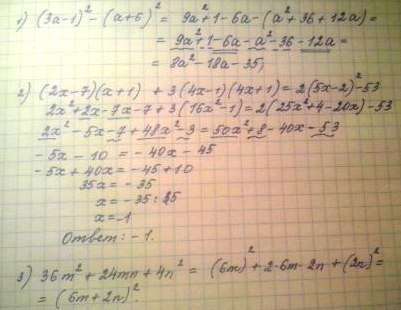 1) (3a-1)² - (a+6)² = 9a²+1-6a-(a²+36+12a) =
= 9a²+1-6a-a²-36-12a =
= 8a²-18a-35;
2) (2x-7)(x+1) + 3(4x-1)(4x+1) = 2(5x-2)²-53
2x²+2x-7x-7+3(16x²-1)=2(25x²+4-20x)-53
2x²-5x-7+48x²-3=50x²+8-40x-53
-5x-10 = -40x-45
-5x+40x=-45+10
35x=-35
x=-35:35
x=-1
Ответ: -1.
3) 36m²+24mn+4n² = (6m)²+2·6m·2n+(2n)²=
= (6m+2n)².